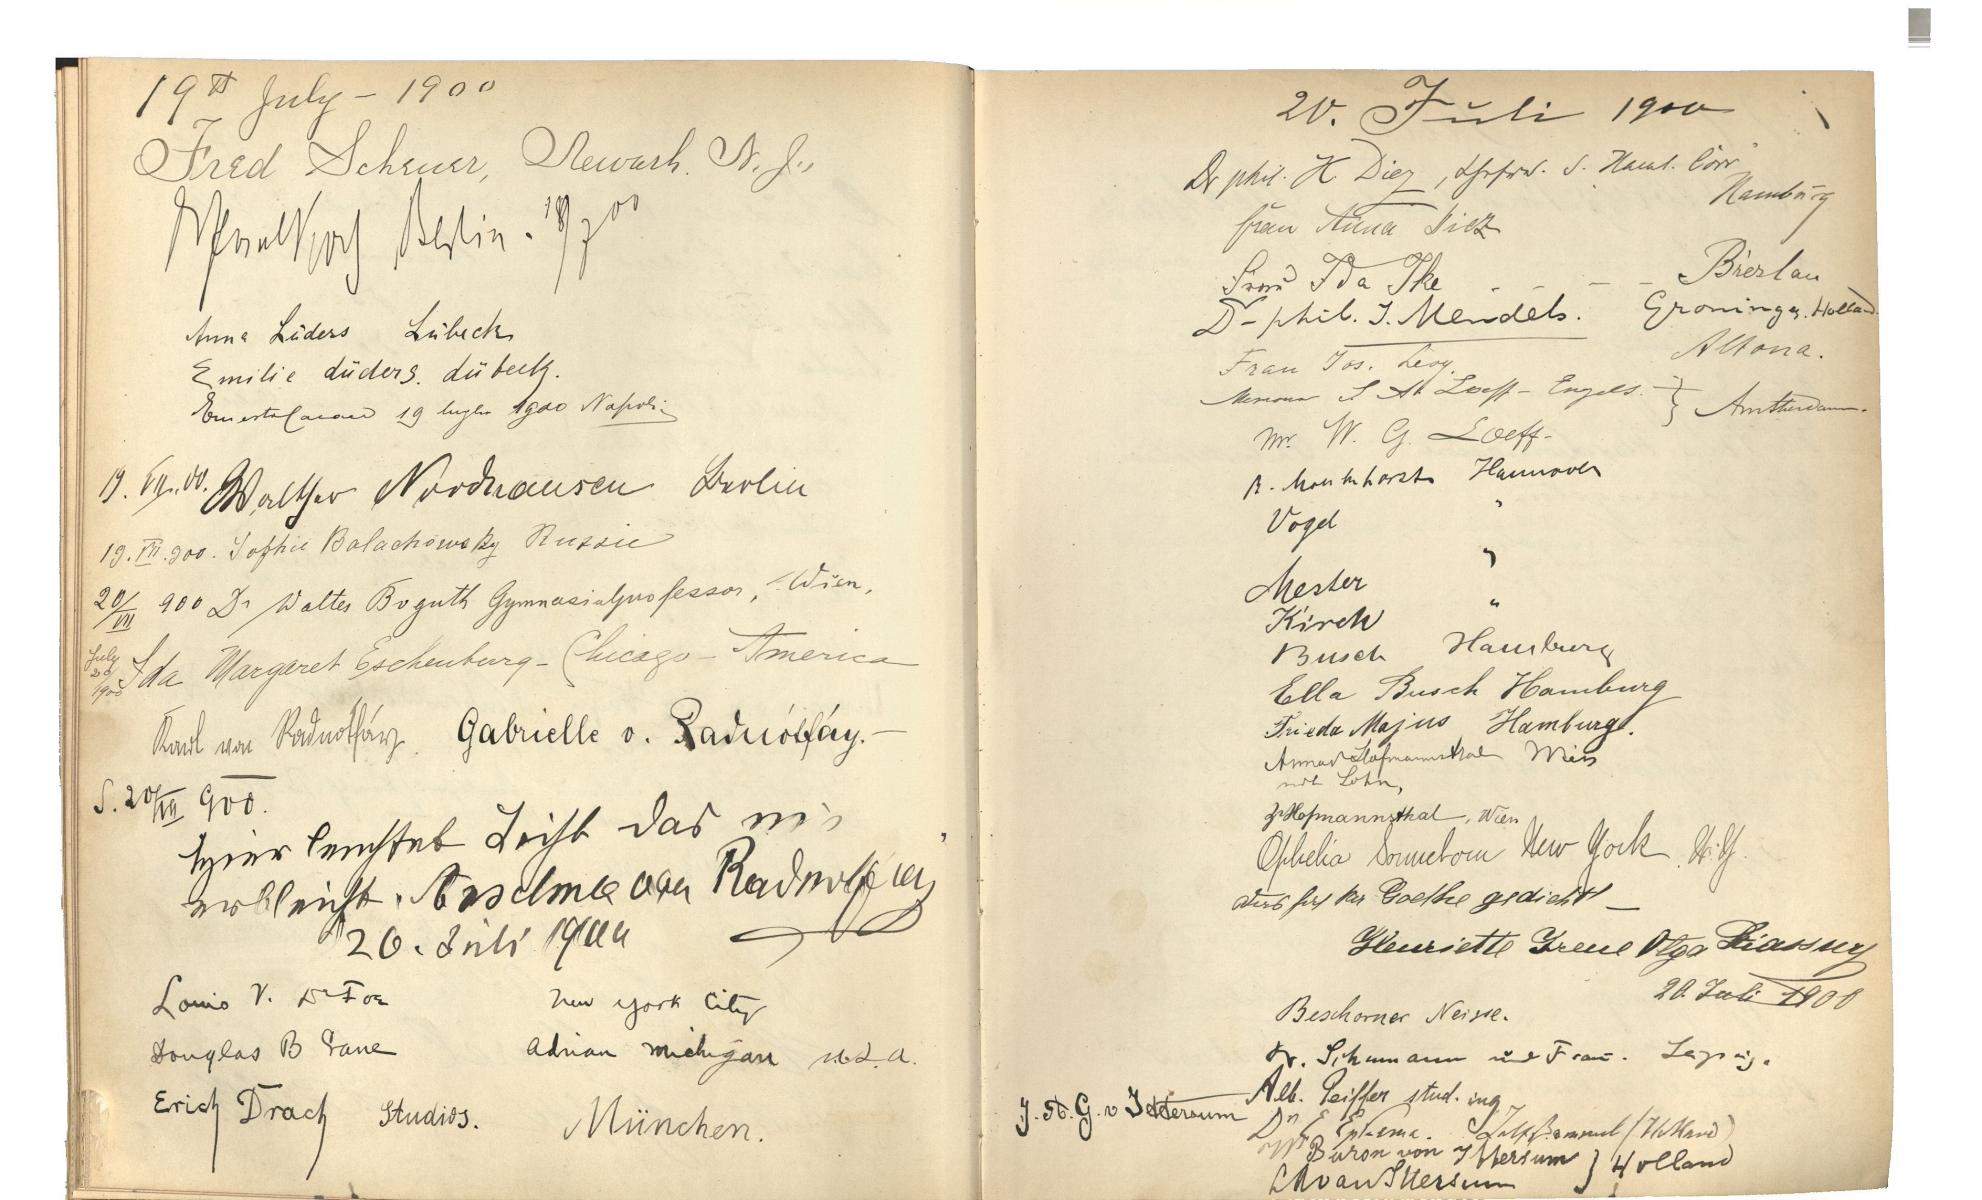 19th July – 1900
Fred Scheuer, Newark. N. J.,
Berlin. 18/7 00
Anna Lüders Lübeck
Emilie Lüders. Lübeck.
19 luglio 1900 Napoli
19. VII. 00. Walther Nordhausen Berlin
19. VII. 900. Sophie Balachowsky Russie
20/VII 900 Dr Walter Boguth Gymnasialprofessor, Wien.
July 20 1900 Ida Margaret Eschenburg – Chicago – America
Karl von Radnótfáy Gabrielle v. Radnótfáy. –
20/VII 900.
Hier leuchtet Licht das nie
erbleicht. von Radnótfáy
20. Juli 1900
Louis V. De Foe New York City
Douglas B Lane Adrian Michigan U.S.A.
Erich Drach Studios. München.
20. Juli 1900
Dr phil. H. Diez, Hamb. Corr.
Hamburg
Frau Anna Diez
Frau Ida Ike – – – Breslau
Dr phil. J. Mendels. Groningen. Holland.
Frau Jos. Levy. Altona.
Mevrouw Loeff – Engels. } Amsterdam.
Mr. W. G. Loeff –
Hannover
Vogel "
Mester "
Kirch "
Busch Hamburg
Ella Busch Hamburg
Frieda Majus Hamburg.
Anna v Hofmannsthal Wien
Hofmannsthal, Wien
Ophelia Sonneborn New York N.Y.
Goethe gedichtet –
Henriette Irene Olga
20. Juli 1900
Beschorner Neisse.
Dr. Schumann und Frau. Leipzig.
Alb. Peiffer stud. ing
J. A. G. v Ittersum
Dr E Epkema. (Holland)
Baron von Ittersum } Holland
van Ittersum